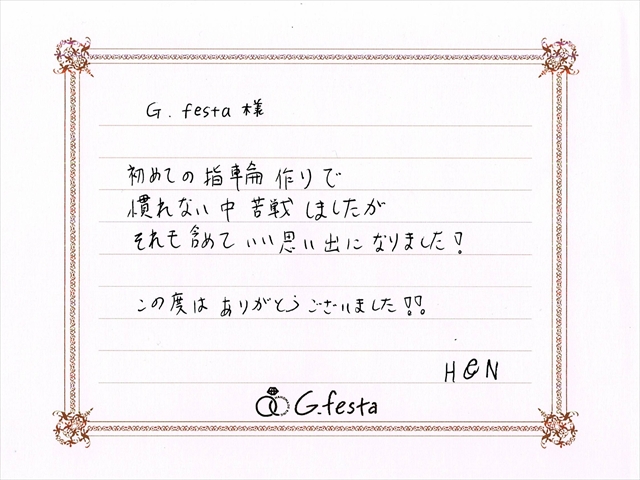 G.festa 様
初めての指輪作りで
慣れない中苦戦しましたが
それも含めていい思い出になりました!
この度はありがとうございました!!
H&N
G.festa